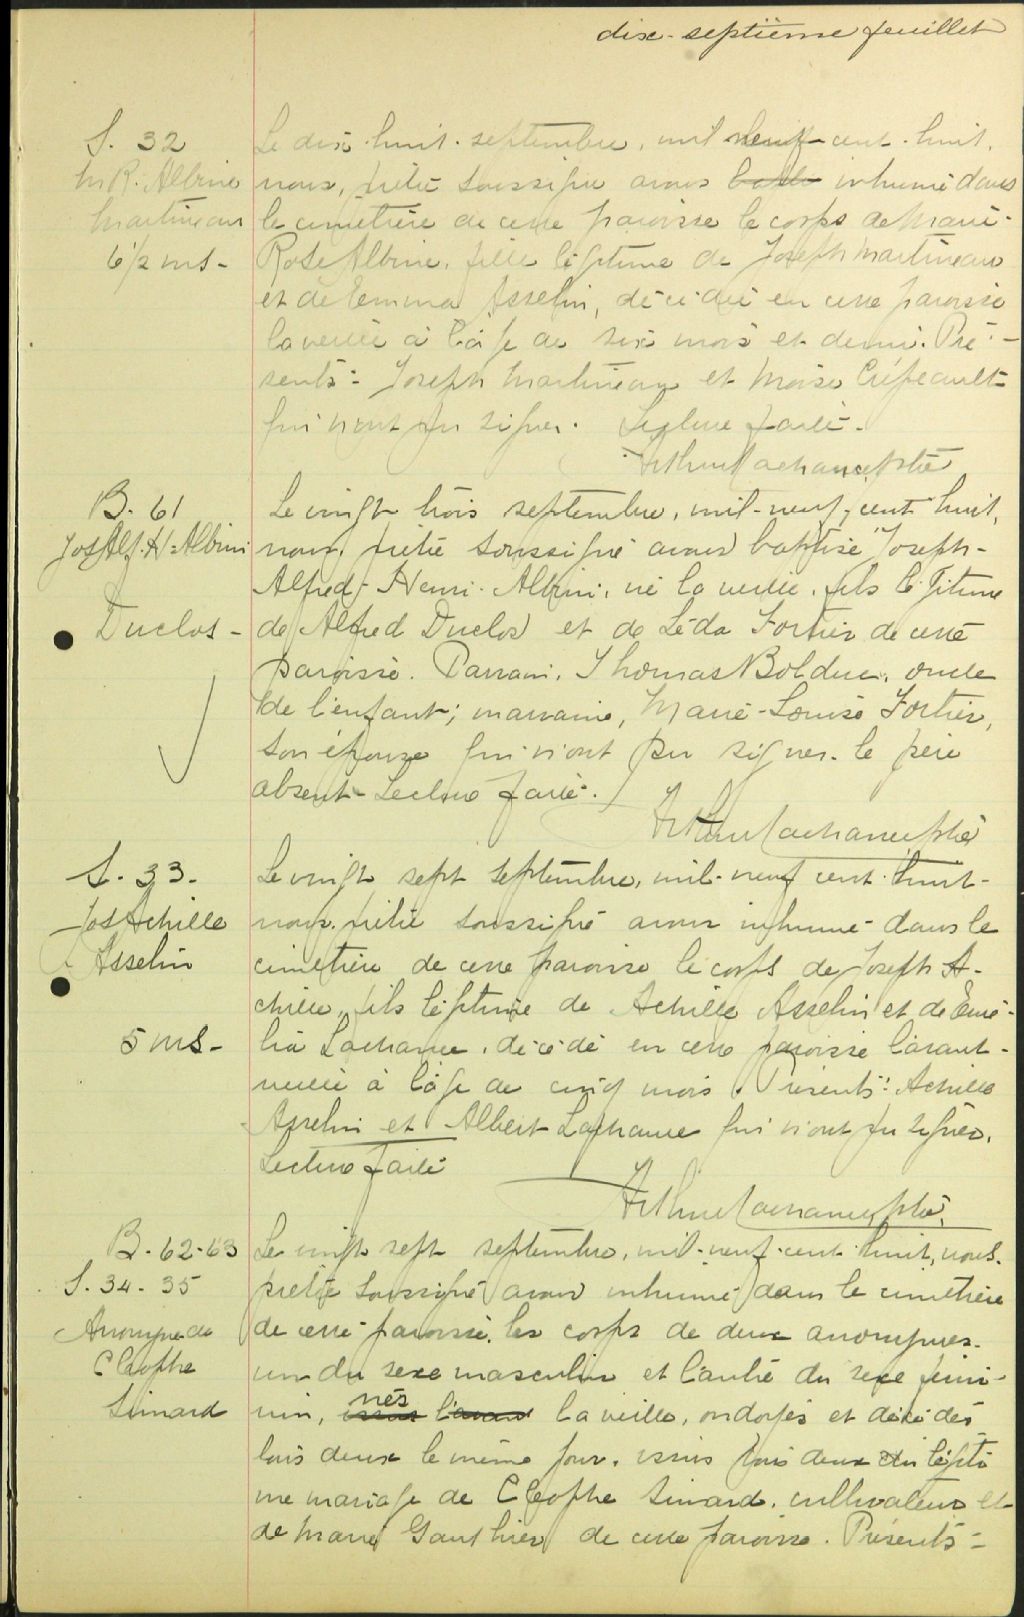 dix-septième feuillet
S. 32
M R. Albine
Martineau
6 1/2 ms -
Le dix-huit septembre, mil neuf cent huit,
nous, prêtre soussigné avons inhumé dans
le cimetière de cette paroisse le corps de Marie-
Rose Albine, fille légitime de Joseph Martineau
et de Emma Asselin, décédée en cette paroisse
la veille à l'âge de six mois et demi. Pré-
sents: Joseph Martineau et Moïse Crépeault
qui n'ont pu signer. Lecture faite.
Arthur Lachance, Ptre
B. 61
Jos Alf. H. Albini
Duclos -
Le vingt trois septembre, mil-neuf-cent huit,
nous, prêtre soussigné avons baptisé Joseph-
Alfred-Henri-Albini, né la veille, fils légitime
de Alfred Duclos et de Léda Fortier de cette
paroisse. Parrain, Thomas Bolduc, oncle
de l'enfant; marraine, Marie-Louise Fortier,
son épouse qui n'ont pu signer. le père
absent - Lecture faite.
Arthur Lachance Ptre
S. 33 -
Jos Achille
Asselin
5 ms -
Le vingt sept septembre, mil-neuf cent huit -
nous, prêtre soussigné avons inhumé dans le
cimetière de cette paroisse le corps de Joseph A-
chille, fils légitime de Achille Asselin et de Emé-
lia Lachance, décédé en cette paroisse l'avant-
veille à l'âge de cinq mois. Présents: Achille
Asselin et Albert Lachance qui n'ont pu signer.
Lecture faite
Arthur Lachance, Ptre
B. 62-63
S. 34 - 35
Anonyme de
Cléophe
Simard
Le vingt sept septembre, mil-neuf-cent huit, nous,
prêtre soussigné avons inhumé dans le cimetière
de cette paroisse, les corps de deux anonymes
un du sexe masculin et l'autre du sexe fémi-
nin, nés la veille, ondoyés et décédés
tous deux le même jour, issus tous deux du légiti
me mariage de Cléophe Simard, cultivateur et
de Marie Gauthier de cette paroisse. Présents -